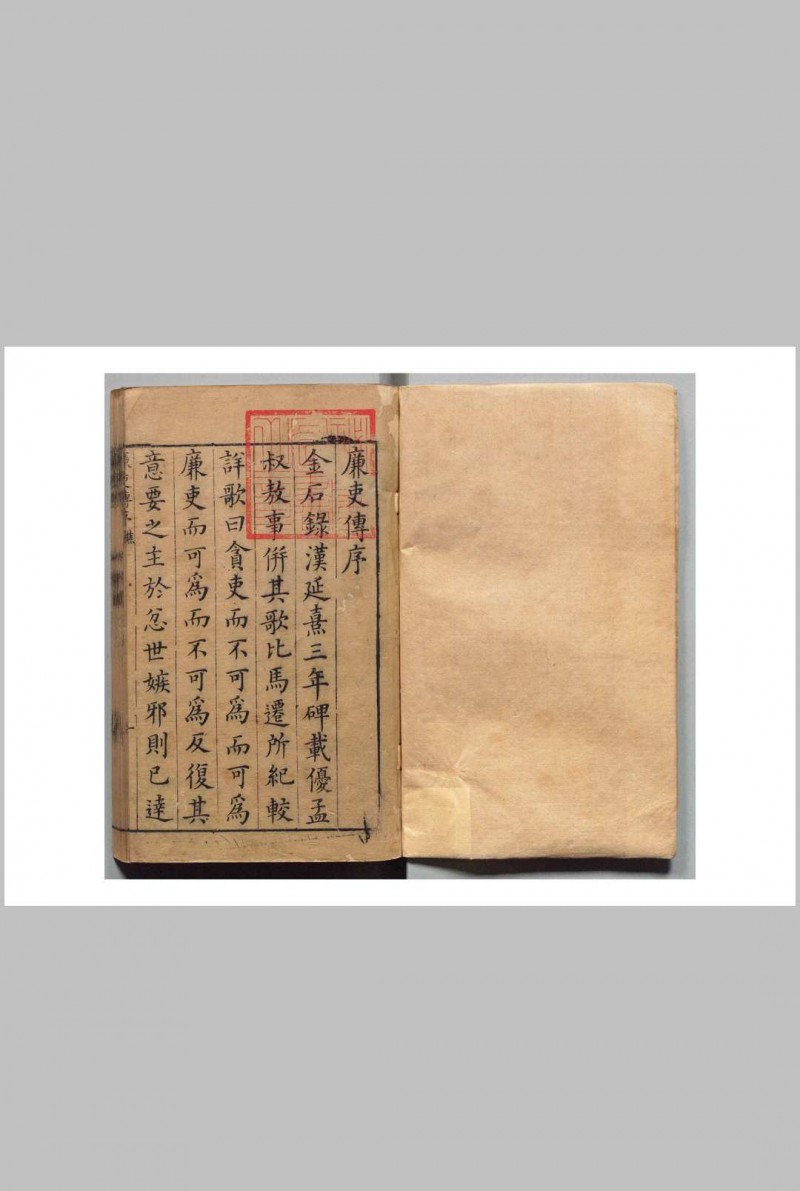 廉吏傳序
金石錄漢延熹三年碑載優孟
叔敖事併其歌比馬遷所紀較
詳歌曰貪吏而不可爲而可爲
廉吏而可爲而不可爲反復其
意要之主於忿世嫉邪則已達